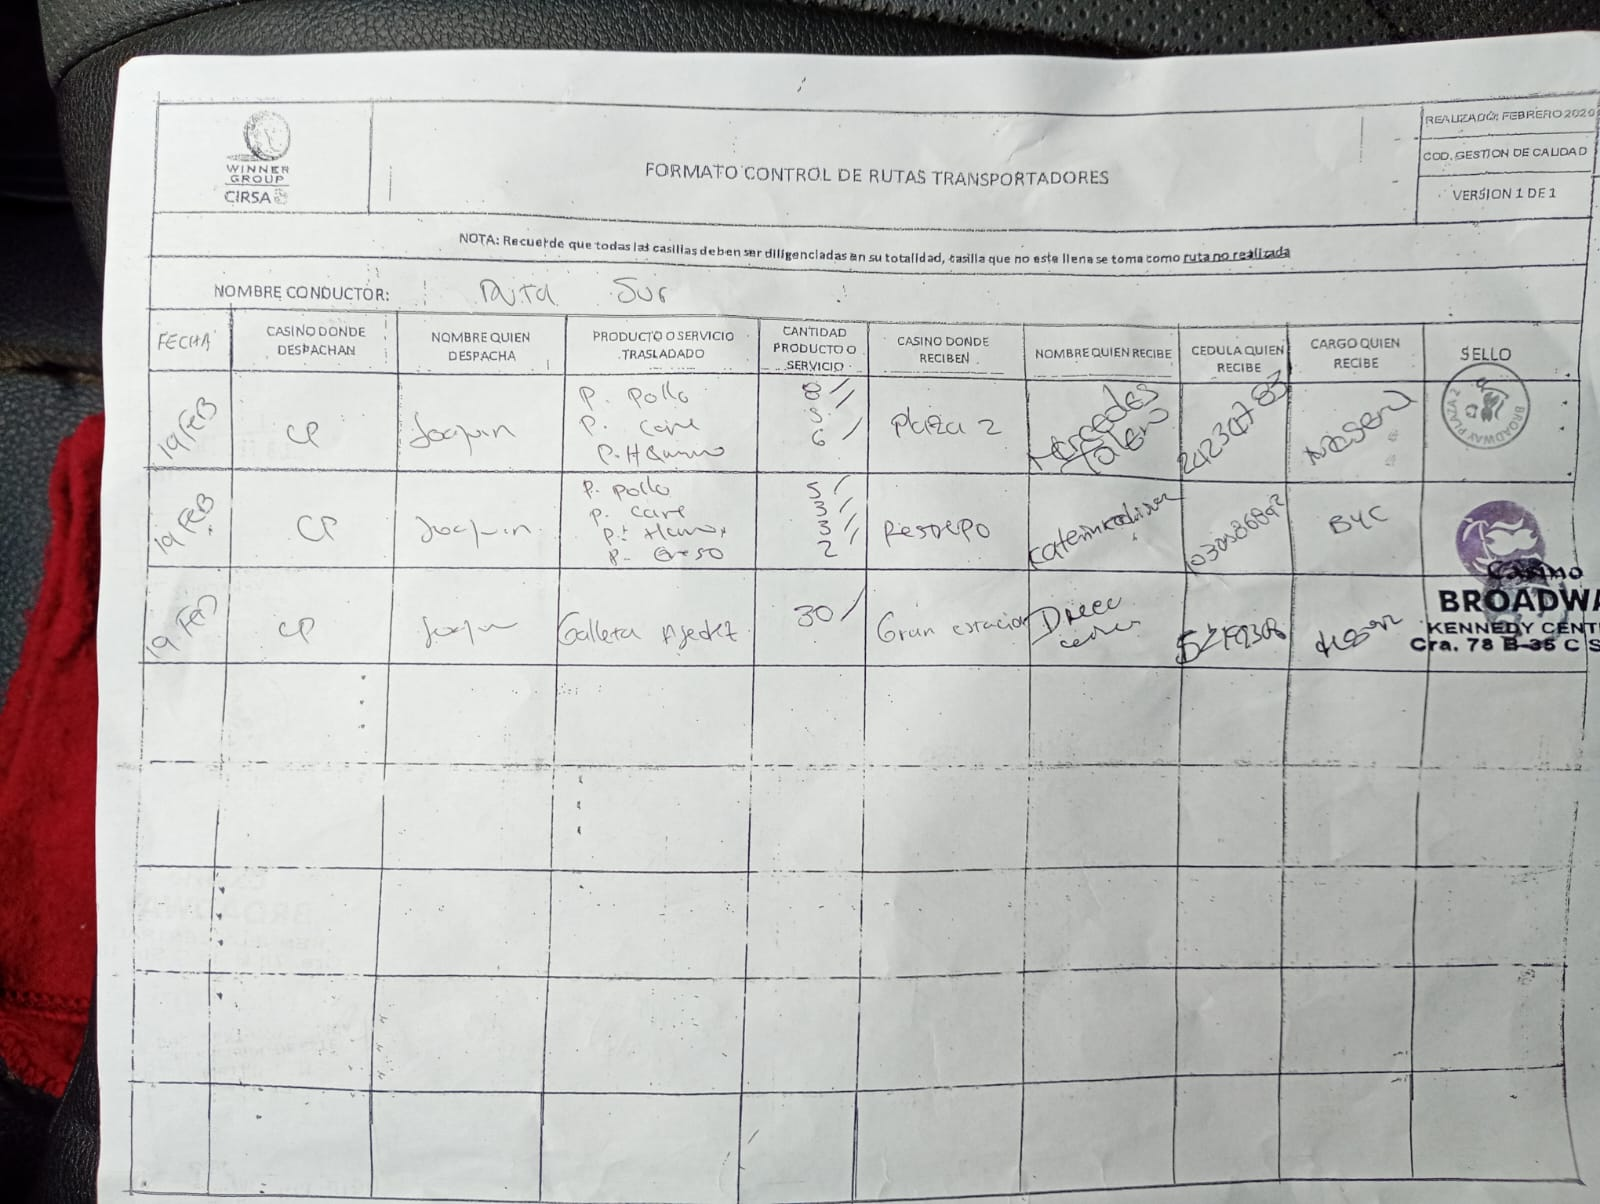 WINNER
GROUP
CIRSA
FORMATO CONTROL DE RUTAS TRANSPORTADORES
REALIZADO: FEBRERO 2020
COD. GESTION DE CALIDAD
VERSION 1 DE 1
NOTA: Recuerde que todas las casillas deben ser diligenciadas en su totalidad, casilla que no este llena se toma como ruta no realizada
NOMBRE CONDUCTOR: Ruta Sur
FECHA
CASINO DONDE
DESPACHAN
NOMBRE QUIEN
DESPACHA
PRODUCTO O SERVICIO
TRASLADADO
CANTIDAD
PRODUCTO O
SERVICIO
CASINO DONDE
RECIBEN
NOMBRE QUIEN RECIBE
CEDULA QUIEN
RECIBE
CARGO QUIEN
RECIBE
SELLO
19 FEB
CP
Joaquin
P. Pollo
P. Carne
8
6
Plaza 2
Mercedes
BROADWAY PLAZA 2
19 FEB
CP
Joaquin
P. Pollo
P. Carne
5
3
3
2
Restrepo
BYC
19 Feb
CP
Joaquin
Galleta Ajedrez
30
Gran estacion
Casino
BROADWA
KENNEDY CENT
Cra. 78 B-35 C S